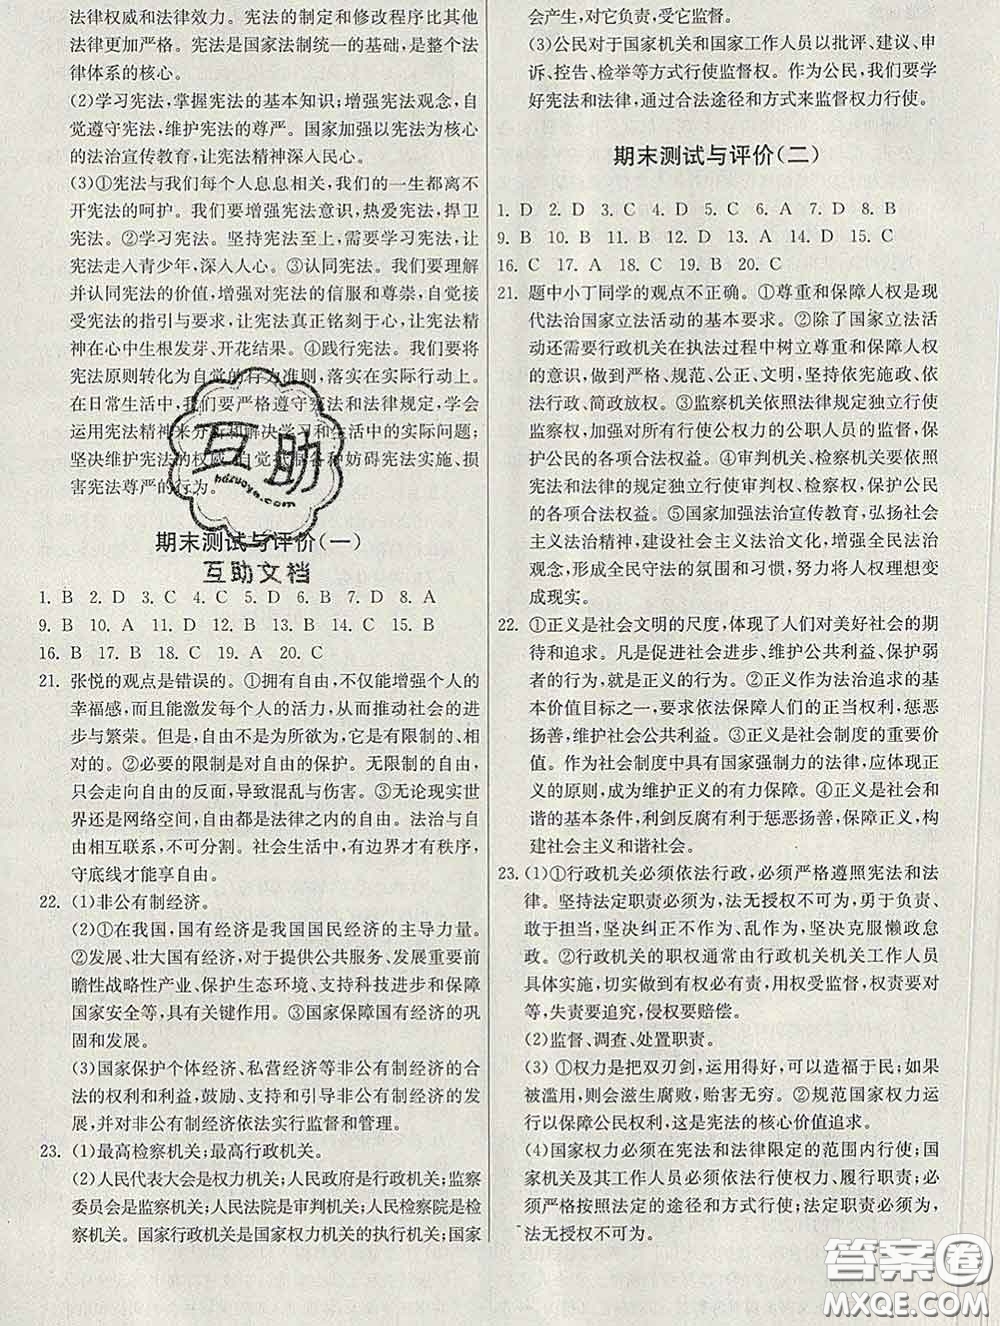 法律权威和法律效力。宪法的制定和修改程序比其他
法律更加严格。宪法是国家法制统一的基础,是整个法
律体系的核心。
(2)学习宪法,掌握宪法的基本知识;增强宪法观念,自
觉遵守宪法,维护宪法的尊严。国家加强以宪法为核心
的法治宣传教育,让宪法精神深入民心。
(3)①宪法与我们每个人息息相关,我们的一生都离不
开宪法的呵护。我们要增强宪法意识,热爱宪法,捍卫
宪法。②学习宪法。坚持宪法至上,需要学习宪法,让
宪法走入青少年,深入人心。③认同宪法。我们要理解
并认同宪法的价值,增强对宪法的信服和尊崇,自觉接
受宪法的指引与要求,让宪法真正铭刻于心,让宪法精
神在心中生根发芽、开花结果。④践行宪法。我们要将
宪法原则转化为自觉的行为准则,落实在实际行动上。
在日常生活中,我们要严格遵守宪法和法律规定,学会
运用宪法精神来分析和解决学习和生活中的实际问题;
坚决维护宪法的权威,自觉抵制各种妨碍宪法实施、损
害宪法尊严的行为。
互助
hdzuoye.com
期末测试与评价(一)
互助文档
1. B 2. D 3. C 4. C 5. D 6. B 7. D 8. A
9. B 10. A 11. D 12. B 13. B 14. C 15. B
16. B 17. B 18. C 19. A 20. C
21. 张悦的观点是错误的。①拥有自由,不仅能增强个人的
幸福感,而且能激发每个人的活力,从而推动社会的进
步与繁荣。但是,自由不是为所欲为,它是有限制的、相
对的。②必要的限制是对自由的保护。无限制的自由
只会走向自由的反面,导致混乱与伤害。③无论现实世
界还是网络空间,自由都是法律之内的自由。法治与自
由相互联系,不可分割。社会生活中,有边界才有秩序,
守底线才能享自由。
22. (1)非公有制经济。
(2)①在我国,国有经济是我国国民经济的主导力量。
②发展、壮大国有经济,对于提供公共服务、发展重要前
瞻性战略性产业、保护生态环境、支持科技进步和保障
国家安全等,具有关键作用。③国家保障国有经济的巩
固和发展。
(3)国家保护个体经济、私营经济等非公有制经济的合
法的权利和利益,鼓励、支持和引导非公有制经济的发
展,并对非公有制经济依法实行监督和管理。
23. (1)最高检察机关;最高行政机关。
(2)人民代表大会是权力机关;人民政府是行政机关;监察
委员会是监察机关;人民法院是审判机关;人民检察院是检
察机关。国家行政机关是国家权力机关的执行机关;国家
会产生,对它负责,受它监督。
(3)公民对于国家机关和国家工作人员以批评、建议、申
诉、控告、检举等方式行使监督权。作为公民,我们要学
好宪法和法律,通过合法途径和方式来监督权力行使。
期末测试与评价(二)
1. D 2. D 3. D 4. D 5. C 6. A 7. D 8. B
9. B 10. B 11. B 12. D 13. A 14. D 15. C
16. C 17. A 18. C 19. B 20. C
21. 题中小丁同学的观点不正确。①尊重和保障人权是现
代法治国家立法活动的基本要求。②除了国家立法活
动还需要行政机关在执法过程中树立尊重和保障人权
的意识,做到严格、规范、公正、文明,坚持依宪施政、依
法行政、简政放权。③监察机关依照法律规定独立行使
监察权,加强对所有行使公权力的公职人员的监督,保
护公民的各项合法权益。④审判机关、检察机关要依照
宪法和法律的规定独立行使审判权、检察权,保护公民
的各项合法权益。⑤国家加强法治宣传教育,弘扬社会
主义法治精神,建设社会主义法治文化,增强全民法治
观念,形成全民守法的氛围和习惯,努力将人权理想变
成现实。
22. ①正义是社会文明的尺度,体现了人们对美好社会的期
待和追求。凡是促进社会进步、维护公共利益、保护弱
者的行为,就是正义的行为。②正义作为法治追求的基
本价值目标之一,要求依法保障人们的正当权利,惩恶
扬善,维护社会公共利益。③正义是社会制度的重要价
值。作为社会制度中具有国家强制力的法律,应体现正
义的原则,成为维护正义的有力保障。④正义是社会和
谐的基本条件,利剑反腐有利于惩恶扬善,保障正义,构
建社会主义和谐社会。
23. (1)①行政机关必须依法行政,必须严格遵照宪法和法
律。坚持法定职责必须为,法无授权不可为,勇于负责、
敢于担当,坚决纠正不作为、乱作为,坚决克服懒政怠
政。②行政机关的职权通常由行政机关机关工作人员
具体实施,切实做到有权必有责,用权受监督,权责要对
等,失责要追究,侵权要赔偿。
(2)监督、调查、处置职责。
(3)①权力是把双刃剑,运用得好,可以造福于民;如果
被滥用,则会滋生腐败,贻害无穷。②规范国家权力运
行以保障公民权利,这是宪法的核心价值追求。
(4)国家权力必须在宪法和法律限定的范围内行使;国
家机关及其工作人员必须依法行使权力、履行职责;必
须严格按照法定的途径和方式行使;法定职责必须为,
法无授权不可为。
答案圈
MXQE.COM